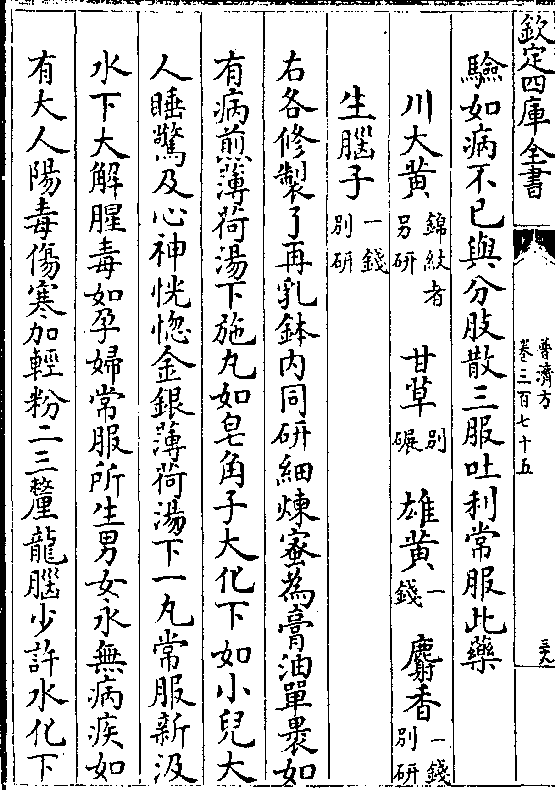 欽定四庫全書
普濟方
卷三百七十五
驗如病不已與分肢散三服吐利常服此藥
川大黄錦紋者另研 甘草別碾 雄黄一錢 麝香一錢別研
生腦子一錢別研
右各修製了再乳鉢内同研細煉蜜為膏油單褁如
有病煎薄荷湯下施丸如皂角子大化下如小兒大
人睡驚及心神恍惚金銀薄荷湯下一丸常服新汲
水下大解腥毒如孕婦常服所生男女永無病疾如
有大人陽毒傷寒加輕粉二三釐龍腦少許水化下